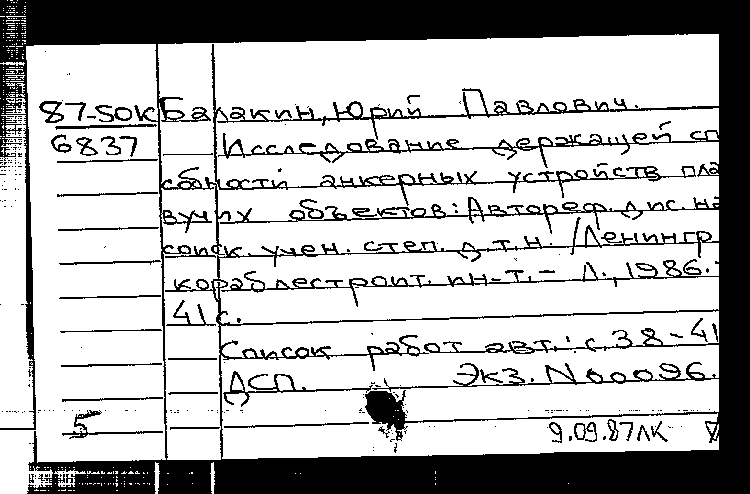 87-50К Балакин, Юрий Павлович.
6837 Исследование держащей сп
обности анкерных устройств пла
вучих объектов: Автореф. дис. на
соиск. учен. степ. д.т.н. /Ленингр
кораблестроит. ин-т. – Л., 1986. –
41 с.
Список работ авт.: с. 38-41
ДСП. Экз. N 00096.
5 9.09.87ЛК